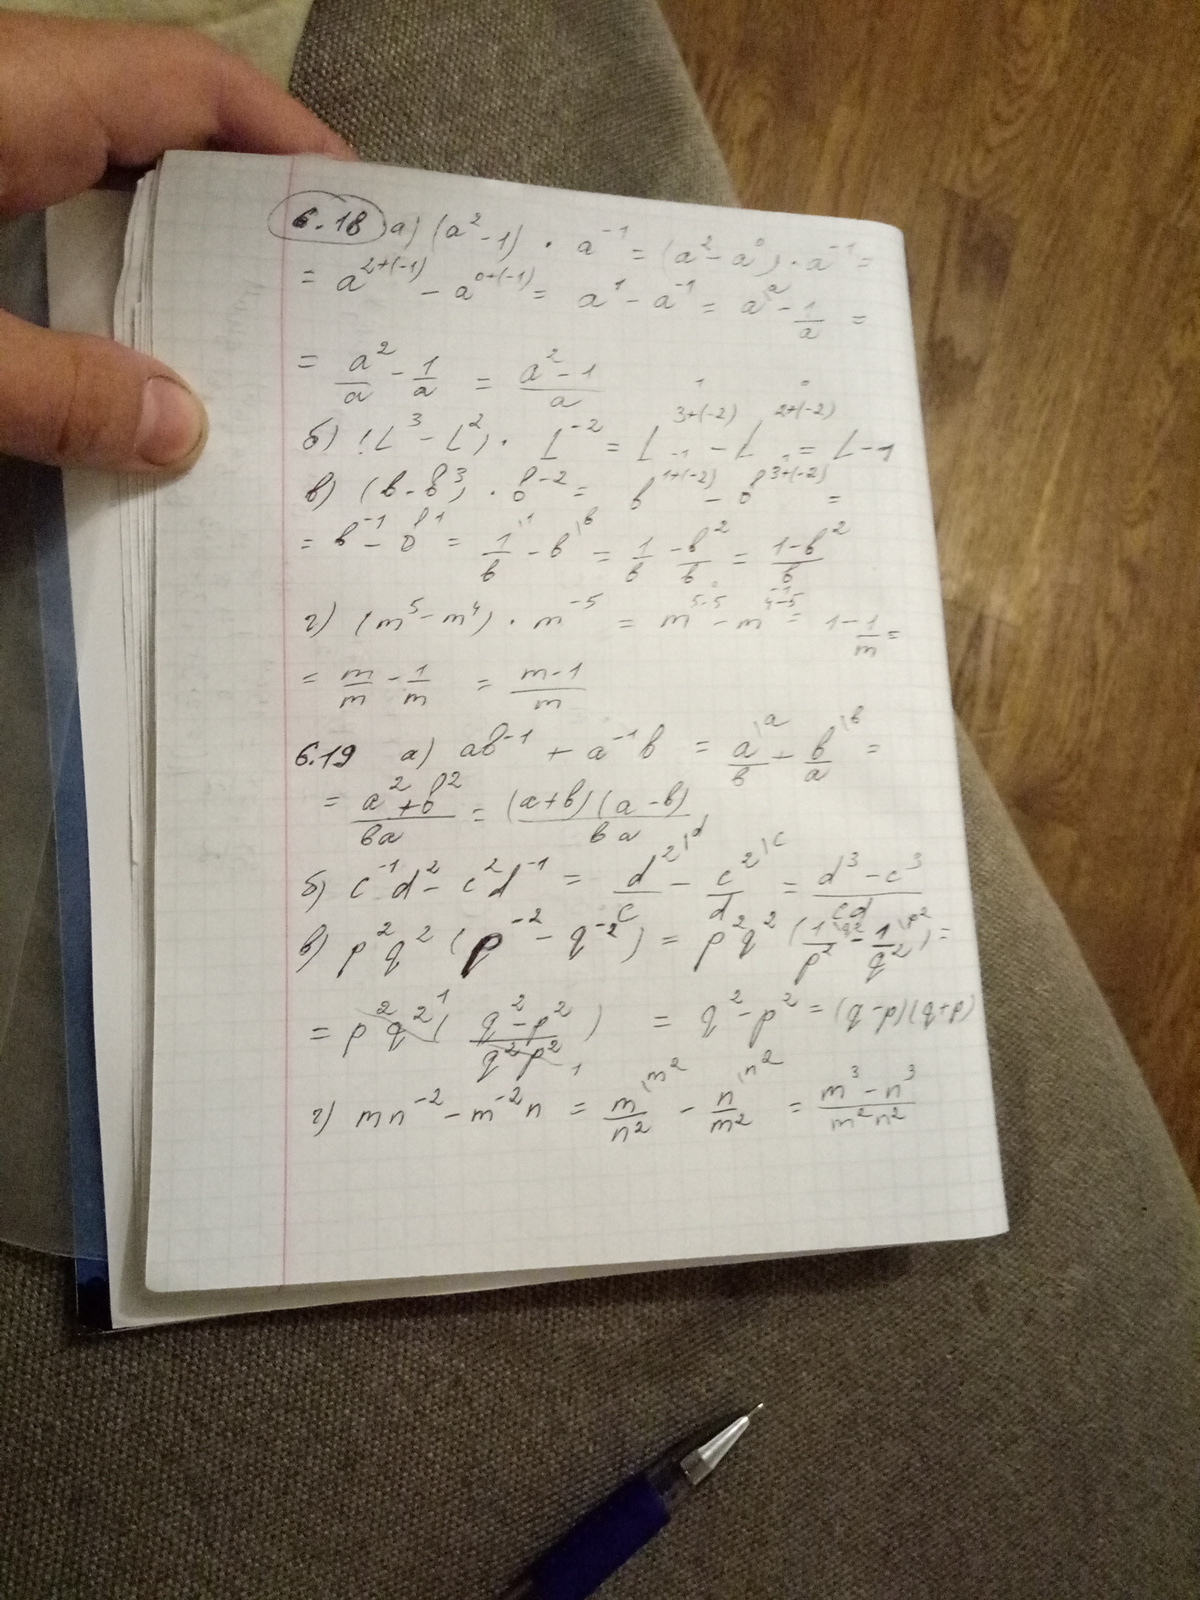 6.18 а) (a² - 1) · a⁻¹ = (a² - a⁰) · a⁻¹ =
= a²⁺⁽⁻¹⁾ - a⁰⁺⁽⁻¹⁾ = a¹ - a⁻¹ = a\ᵃ - 1/a =
= a²/a - 1/a = (a² - 1)/a
б) (L³ - L²) · L⁻² = L³⁺⁽⁻²⁾ - L²⁺⁽⁻²⁾ = L - 1
в) (b - b³) · b⁻² = b¹⁺⁽⁻²⁾ - b³⁺⁽⁻²⁾ =
= b⁻¹ - b¹ = 1\¹/b - b\ᵇ = 1/b - b²/b = (1 - b²)/b
г) (m⁵ - m⁴) · m⁻⁵ = m⁵⁻⁵ - m⁴⁻⁵ = 1 - 1/m =
= m/m - 1/m = (m - 1)/m
6.19 а) ab⁻¹ + a⁻¹b = a\ᵃ/b + b\ᵇ/a =
= (a² + b²)/ba = (a+b)(a-b)/ba
б) c⁻¹d² - c²d⁻¹ = d²\ᵈ/c - c²\ᶜ/d = (d³ - c³)/cd
в) p²q² (p⁻² - q⁻²) = p²q² (1\q²/p² - 1\p²/q²) =
= p²q²¹ ((q² - p²)/q²p² ₁) = q² - p² = (q-p)(q+p)
г) mn⁻² - m⁻²n = m\m²/n² - n\n²/m² = (m³ - n³)/m²n²